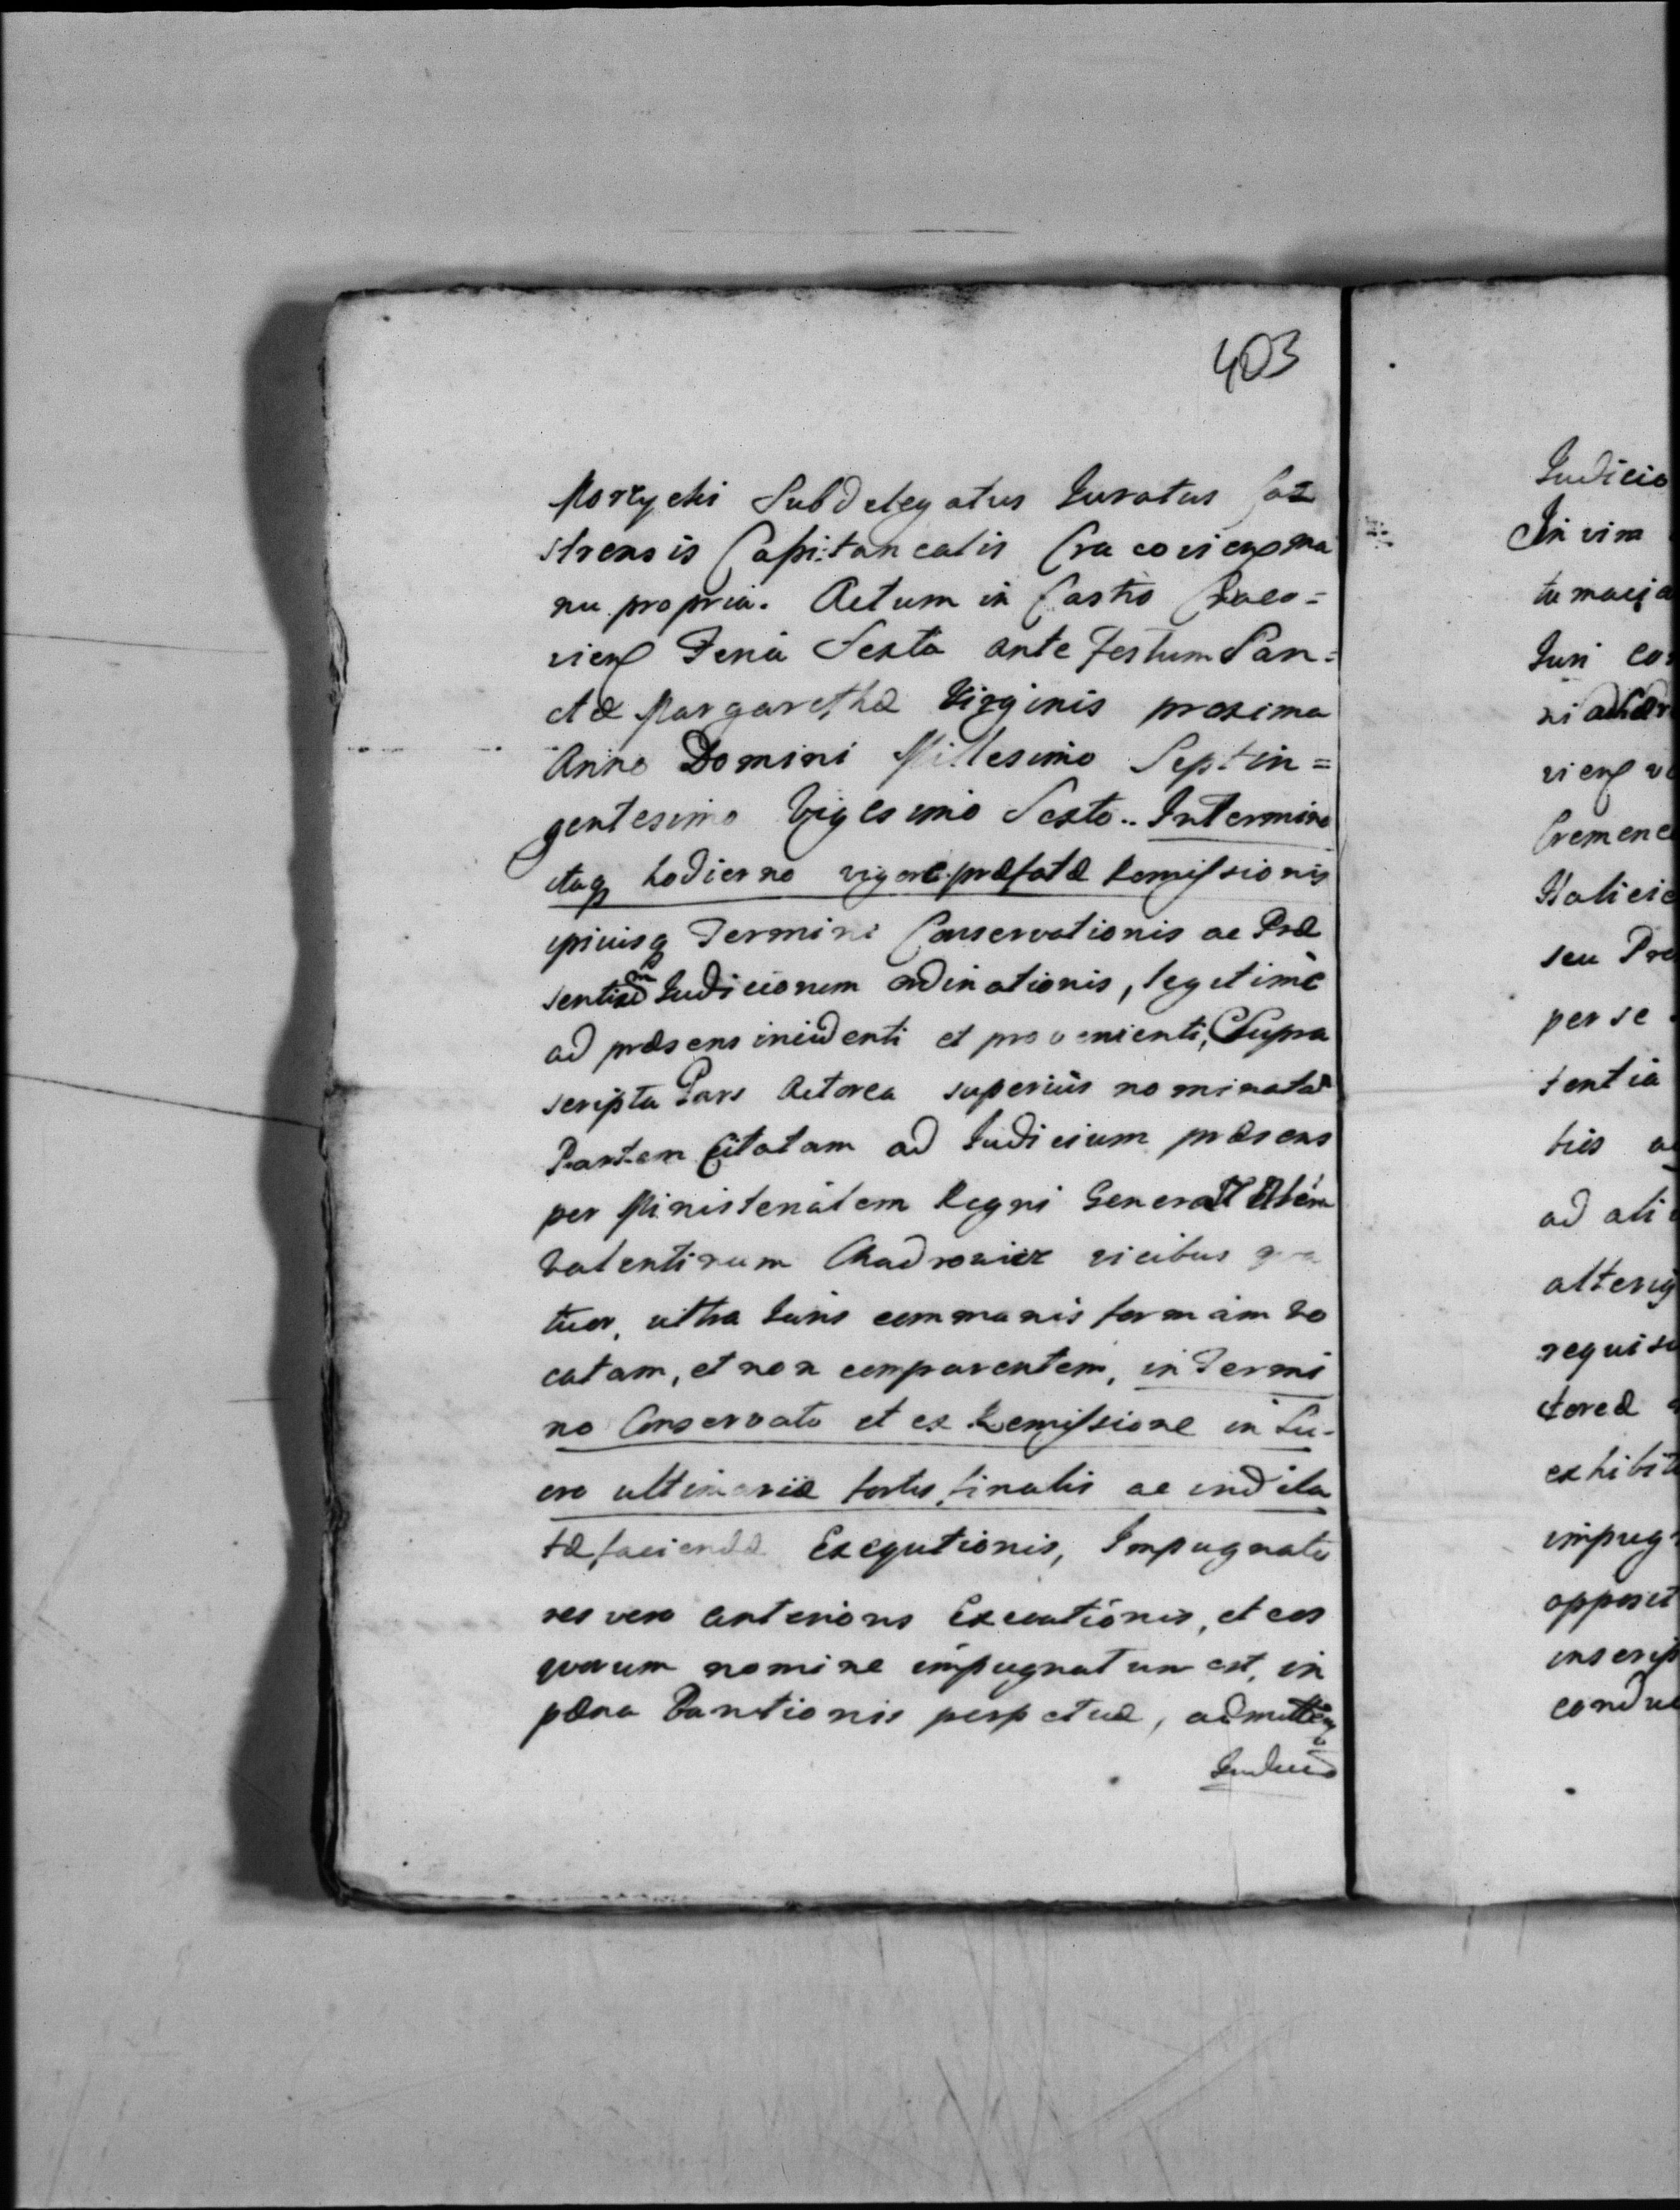 403
Morzycki Subdelegatus Juratus Cas
strensis Capitanealis Cracovien ma
nu propria. Actum in Castro Craco=
vien Feria Sexta ante Festum San=
ctæ Margarethæ Virginis proxima
Anno Domini Millesimo Septin=
gentesimo Vigesimo Sexto.. In termino
itaq hodierno vigore præfatæ Remissionis
ipsiusq Termini Conservationis ac Præ
sentium Judiciorum ordinationis, legitime
ad præsens incidenti et provenienti, Supra
scripta Pars Actorea superius nominata
Partem Citatam ad Judicium præsens
per Ministerialem Regni Generalem
Valentinum vicibus qua
tuor, ultra Juris communis formam vo
catam, et non comparentem, in Termi
no Conservato et ex Remissione in Fu-
ero ultimariæ fortis, finalis ac indila
tæ faciendæ Exequtionis, Impugnato
res vero anterioris Executionis, et eos
quorum nomine impugnatum est, in
pæna Bannitionis perpetuæ, admitten
Judicio
Judicio
In vim
tumacia
Juri con
ni adhær
vien
Cremene
Halicie
seu Pro
per se
tentia
tis
ad ali
alteriq
requisi
ctoreæ
exhibit
impug
opposit
inscrip
condu